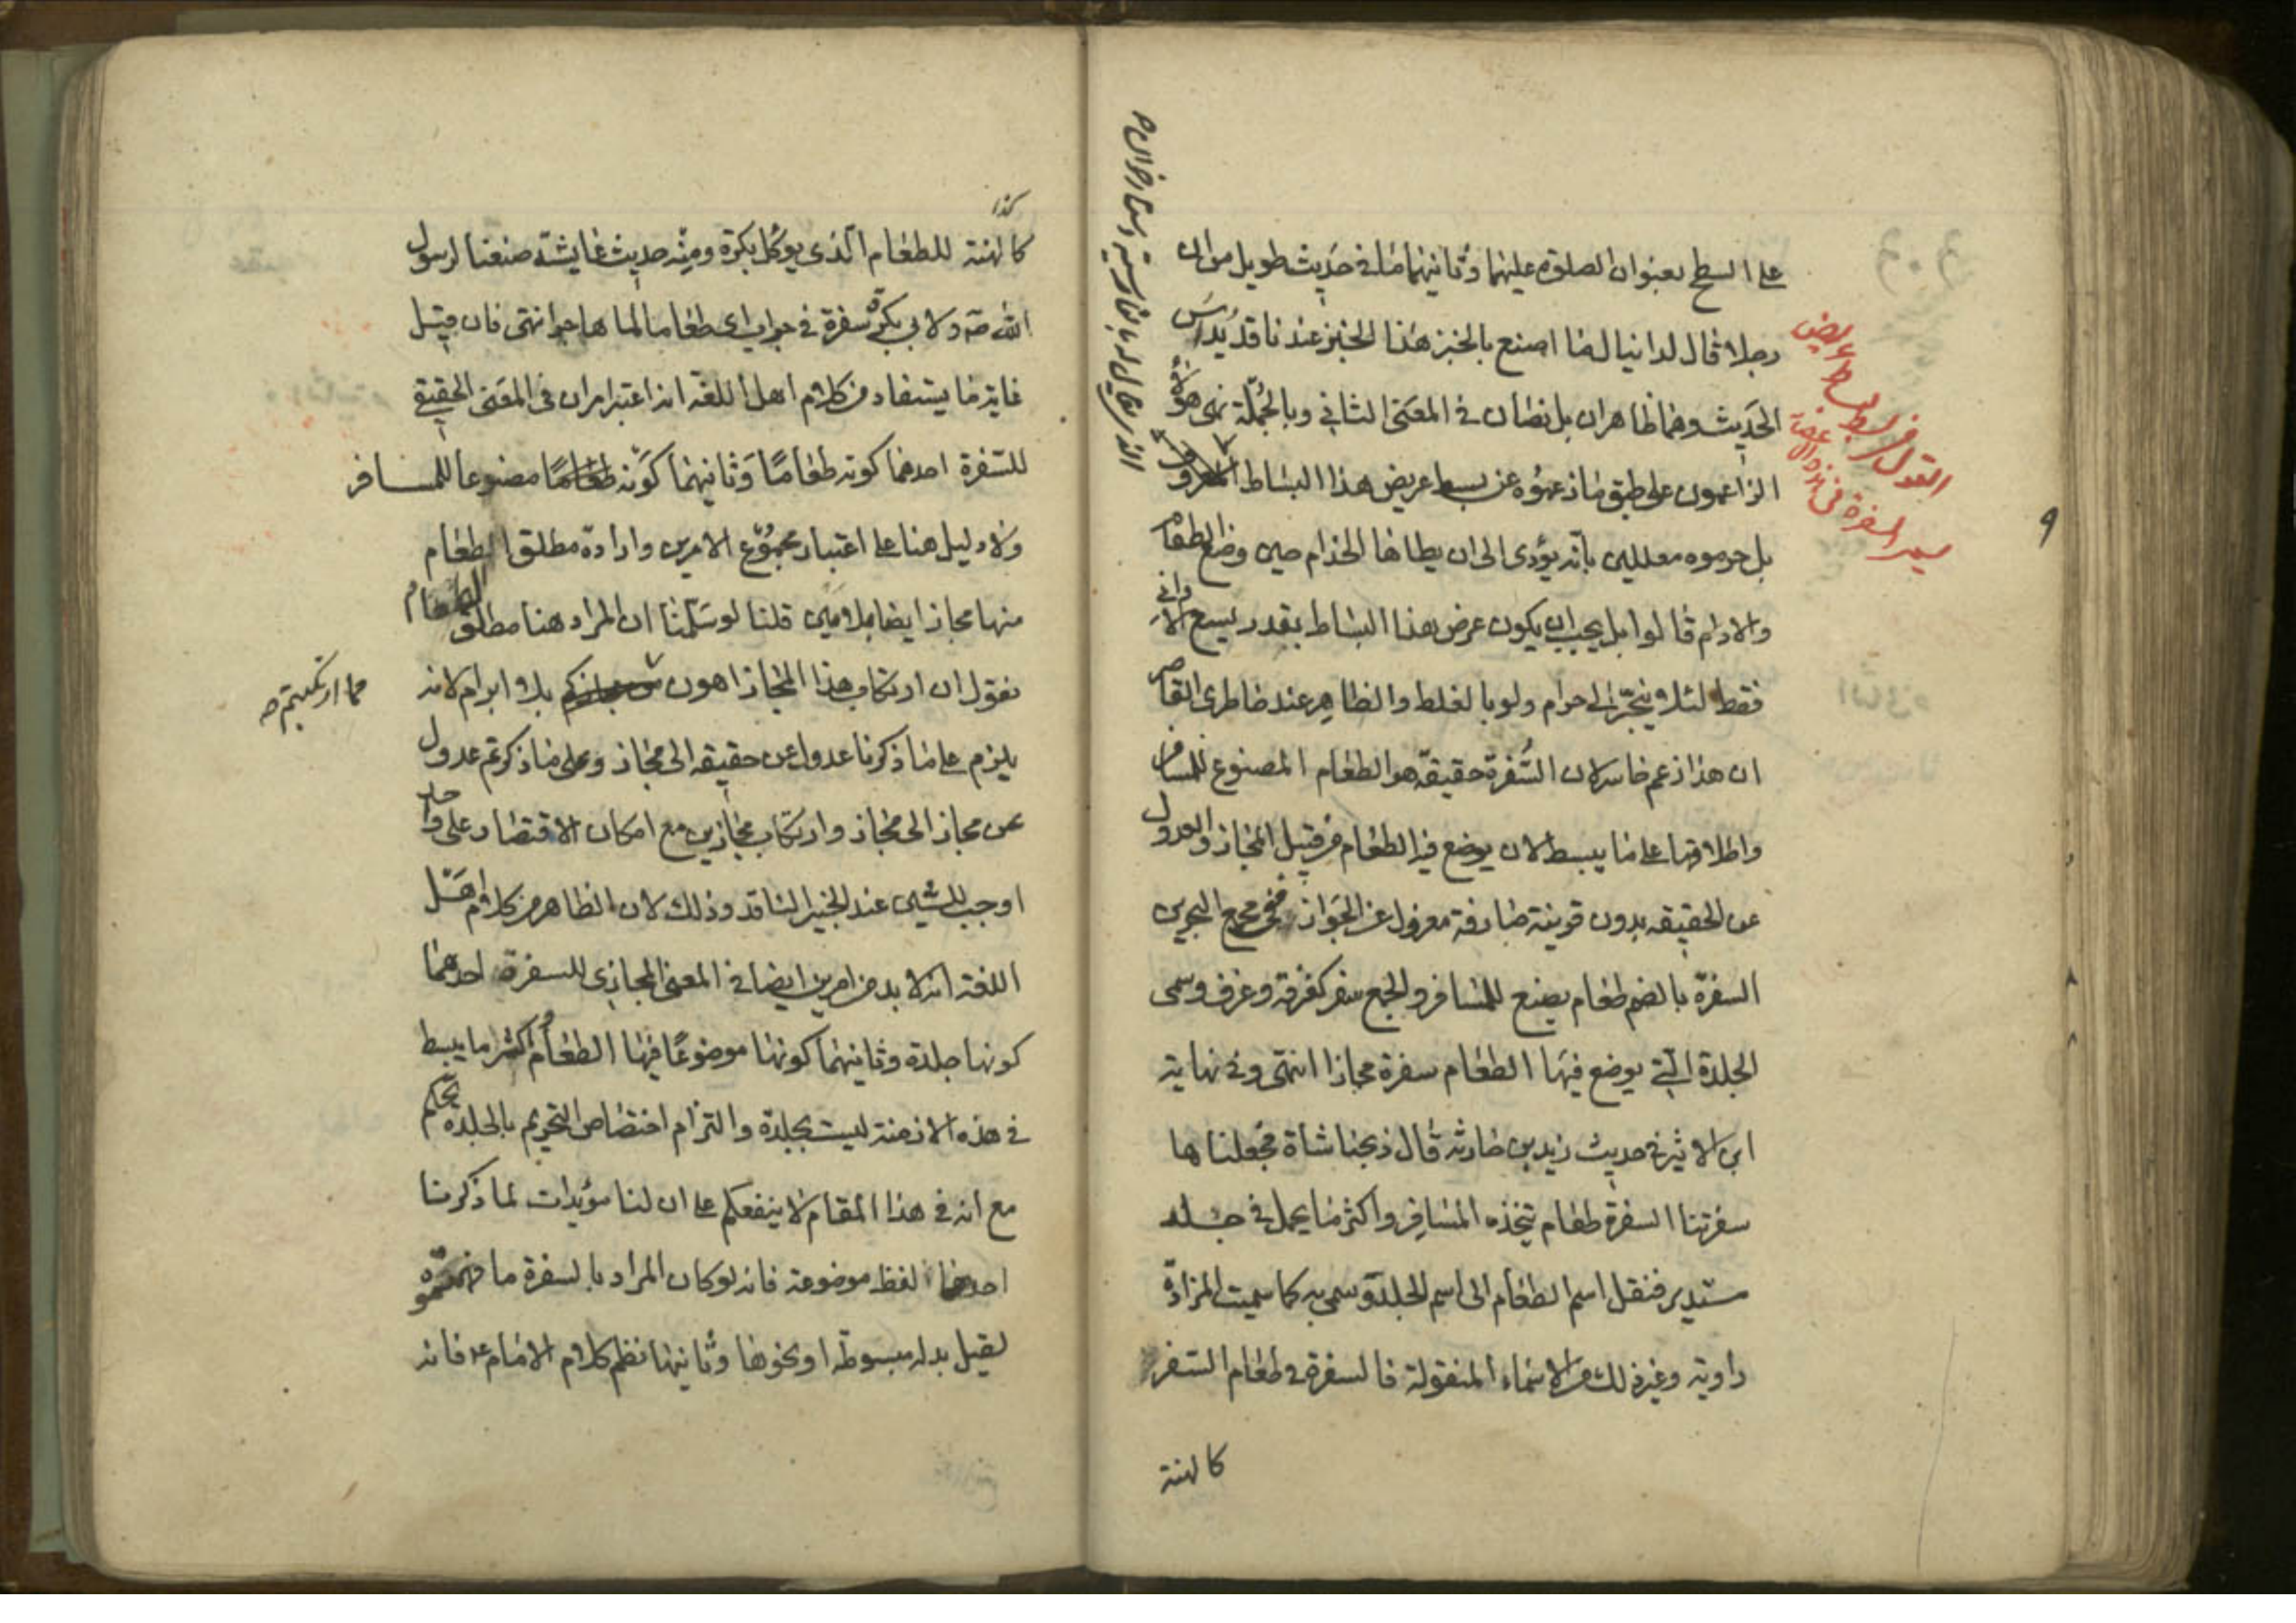 على السطح بعنوان الصلوة عليهما وثانيهما ما فى حديث طويل من ان
رجلا قال لدانيال ما اصنع بالخبز هذا الخبز عندنا قد يداس
الحديث وهما ظاهران بل نصان فى المعنى الثانى وبالجملة نرى هؤلاء
الزاعمون على طبق ما زعموه عن بسط عريض هذا البساط المعروف
بل حرموه معللين بانه يؤدى الى ان يطاها الخدام حين وضع الطعام
والادام قالوا بل يجب ان يكون عرض هذا البساط بقدر يسع الاوانى
فقط لئلا ينجر الى حرام ولو بالغلط والظاهر عند خاطرى القاصر
ان هذا زعم خاسر لان السُّفرة حقيقة هو الطعام المصنوع للمسافر
واطلاقها على ما يبسط لان يوضع فيه الطعام من قبيل المجاز والعدول
عن الحقيقه بدون قرينة صارفة معزول عن الجواز ففى مجمع البحرين
السفرة بالضم طعام يصنع للمسافر والجمع سفر كغرفة وغرف وسمى
الجلدة التى يوضع فيها الطعام سفرة مجازا انتهى وفى نهاية
ابن الاثير فى حديث زيد بن حارثه قال ذبحنا شاة فجعلناها
سفرتنا السفرة طعام يتخذه المسافر واكثر ما يحمل فى جلد
مستدير فنقل اسم الطعام الى اسم الجلد وسمى به كما سميت المزادة
راوية وغير ذلك من الاسماء المنقولة فالسفرة فى طعام السفر
كالهنة
القول فى بسط بساط عريض
يسمى السفرة فى هذه الاعصار
٩
كذا
كالهنة للطعام الذى يؤكل بكرة ومنه حديث عايشة صنعنا لرسول
الله ص ولابى بكر سفرة فى جراب اى طعاما لما هاجرا انتهى فان قيل
غاية ما يستفاد من كلام اهل اللغة انه اعتبر امران فى المعنى الحقيقى
للسفرة احدهما كونه طعامًا وثانيهما كونه مصنوعا للمسافر
ولا دليل هنا على اعتبار مجموع الامرين وارادة مطلق الطعام
منها مجاز ايضا بلا مين قلنا لو سلمنا ان المراد هنا مطلق الطعام
نقول ان ارتكاب هذا المجاز اهون بلا ابرام لانه
مما ارتكبتم صه
يلزم على ما ذكرنا عدول عن حقيقه الى مجاز وعلى ما ذكرتم عدول
عن مجاز الى مجاز وارتكاب مجازين مع امكان الاقتصار على واحد
اوجب للشين عند الخبير الناقد وذلك لان الظاهر من كلام اهل
اللغة انه لا بد من امرين ايضا فى المعنى المجازى للسفرة احدهما
كونها جلدة وثانيهما كونها موضوعًا فيها الطعام واكثر ما يبسط
فى هذه الازمنة ليست بجلدة والتزام اختصاص التحريم بالجلدة تحكم
مع انه فى هذا المقام لا ينفعكم على ان لنا مؤيدات لما ذكرنا
احدها لفظ موضوعة فانه لو كان المراد بالسفرة ما فهمتموه
لقيل بدله مبسوطة او نحوها وثانيها نظم كلام الامام ع فانه